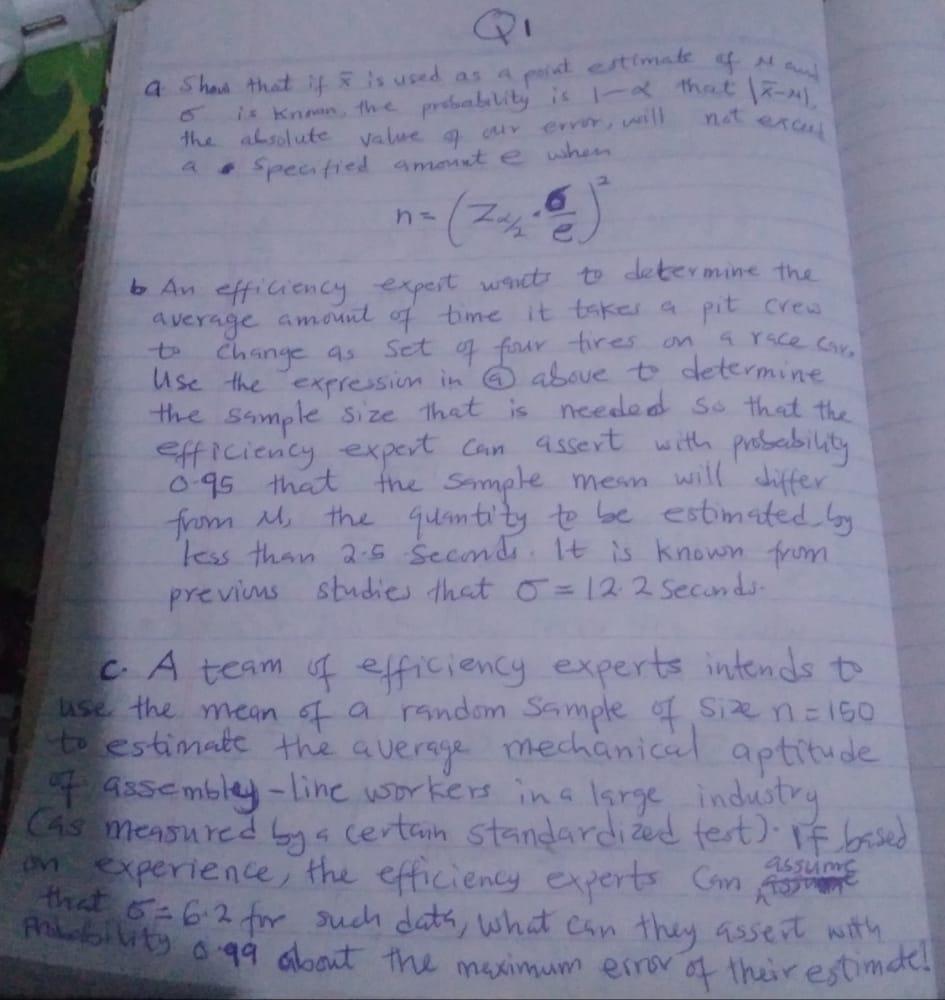 Q1
a. Show that if x̄ is used as a point estimate of μ and
σ is known, the probability is 1-α that |x̄-μ|,
the absolute value of our error, will not exceed
a specified amount e when
n = (Z α/2 · σ/e)²
b An efficiency expert wants to determine the
average amount of time it takes a pit crew
to change as set of four tires on a race car.
Use the expression in ⓐ above to determine
the sample size that is needed so that the
efficiency expert can assert with probability
0.95 that the sample mean will differ
from μ, the quantity to be estimated, by
less than 2.5 seconds. It is known from
previous studies that σ = 12.2 seconds.
c. A team of efficiency experts intends to
use the mean of a random sample of size n = 150
to estimate the average mechanical aptitude
of assembley-line workers in a large industry
(as measured by a certain standardized test). If based
on experience, the efficiency experts can assume
that σ = 6.2 for such data, what can they assert with
Probability 0.99 about the maximum error of their estimate!